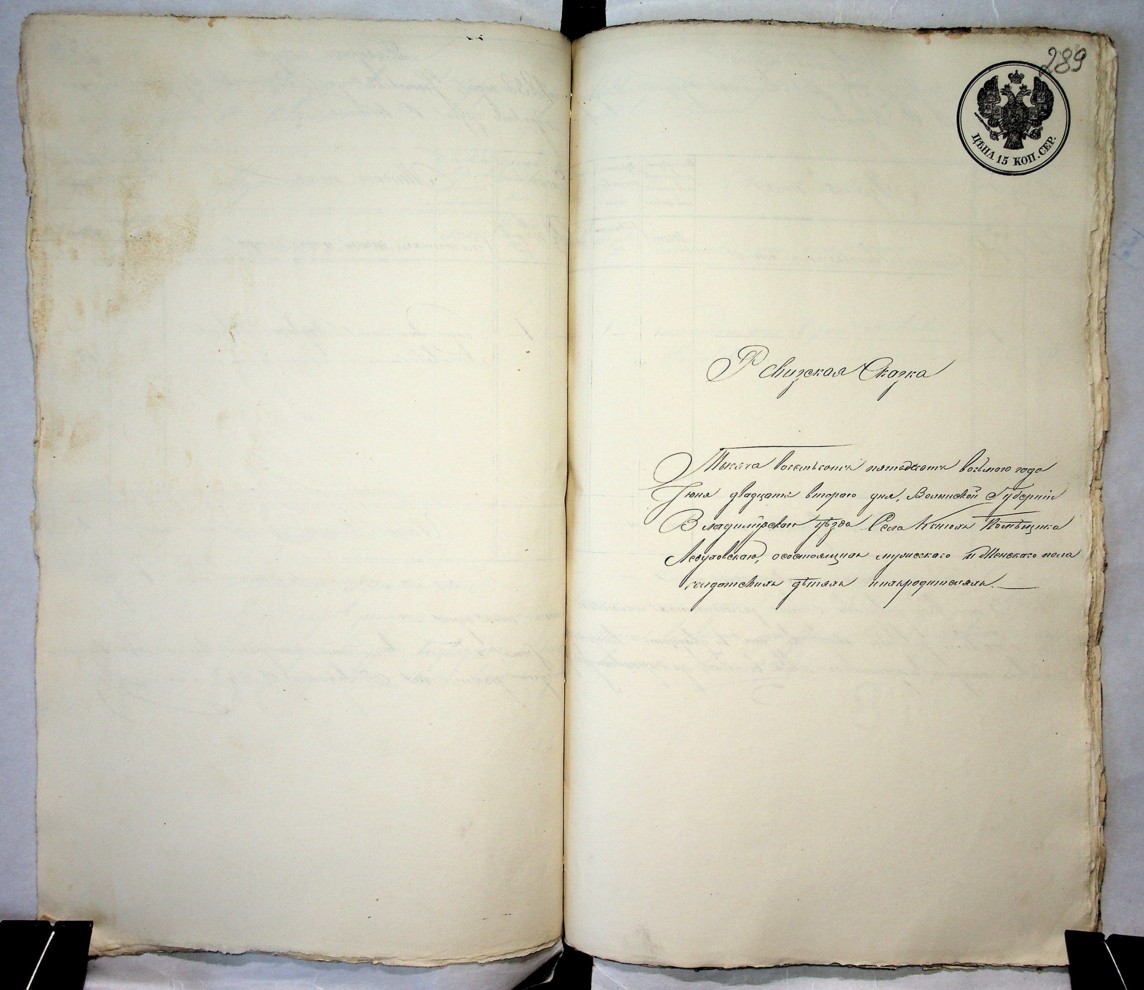 289
ЦѢНА 15 КОП. СЕР.
Ревизская Сказка
Тысяча восемьсотъ пятьдесятъ восьмого года
Іюня двадцать второго дня, Волынской Губерніи
Владимірскаго уѣзда Села Помѣщика
о состоящихъ мужескаго и женскаго пола
дѣтяхъ